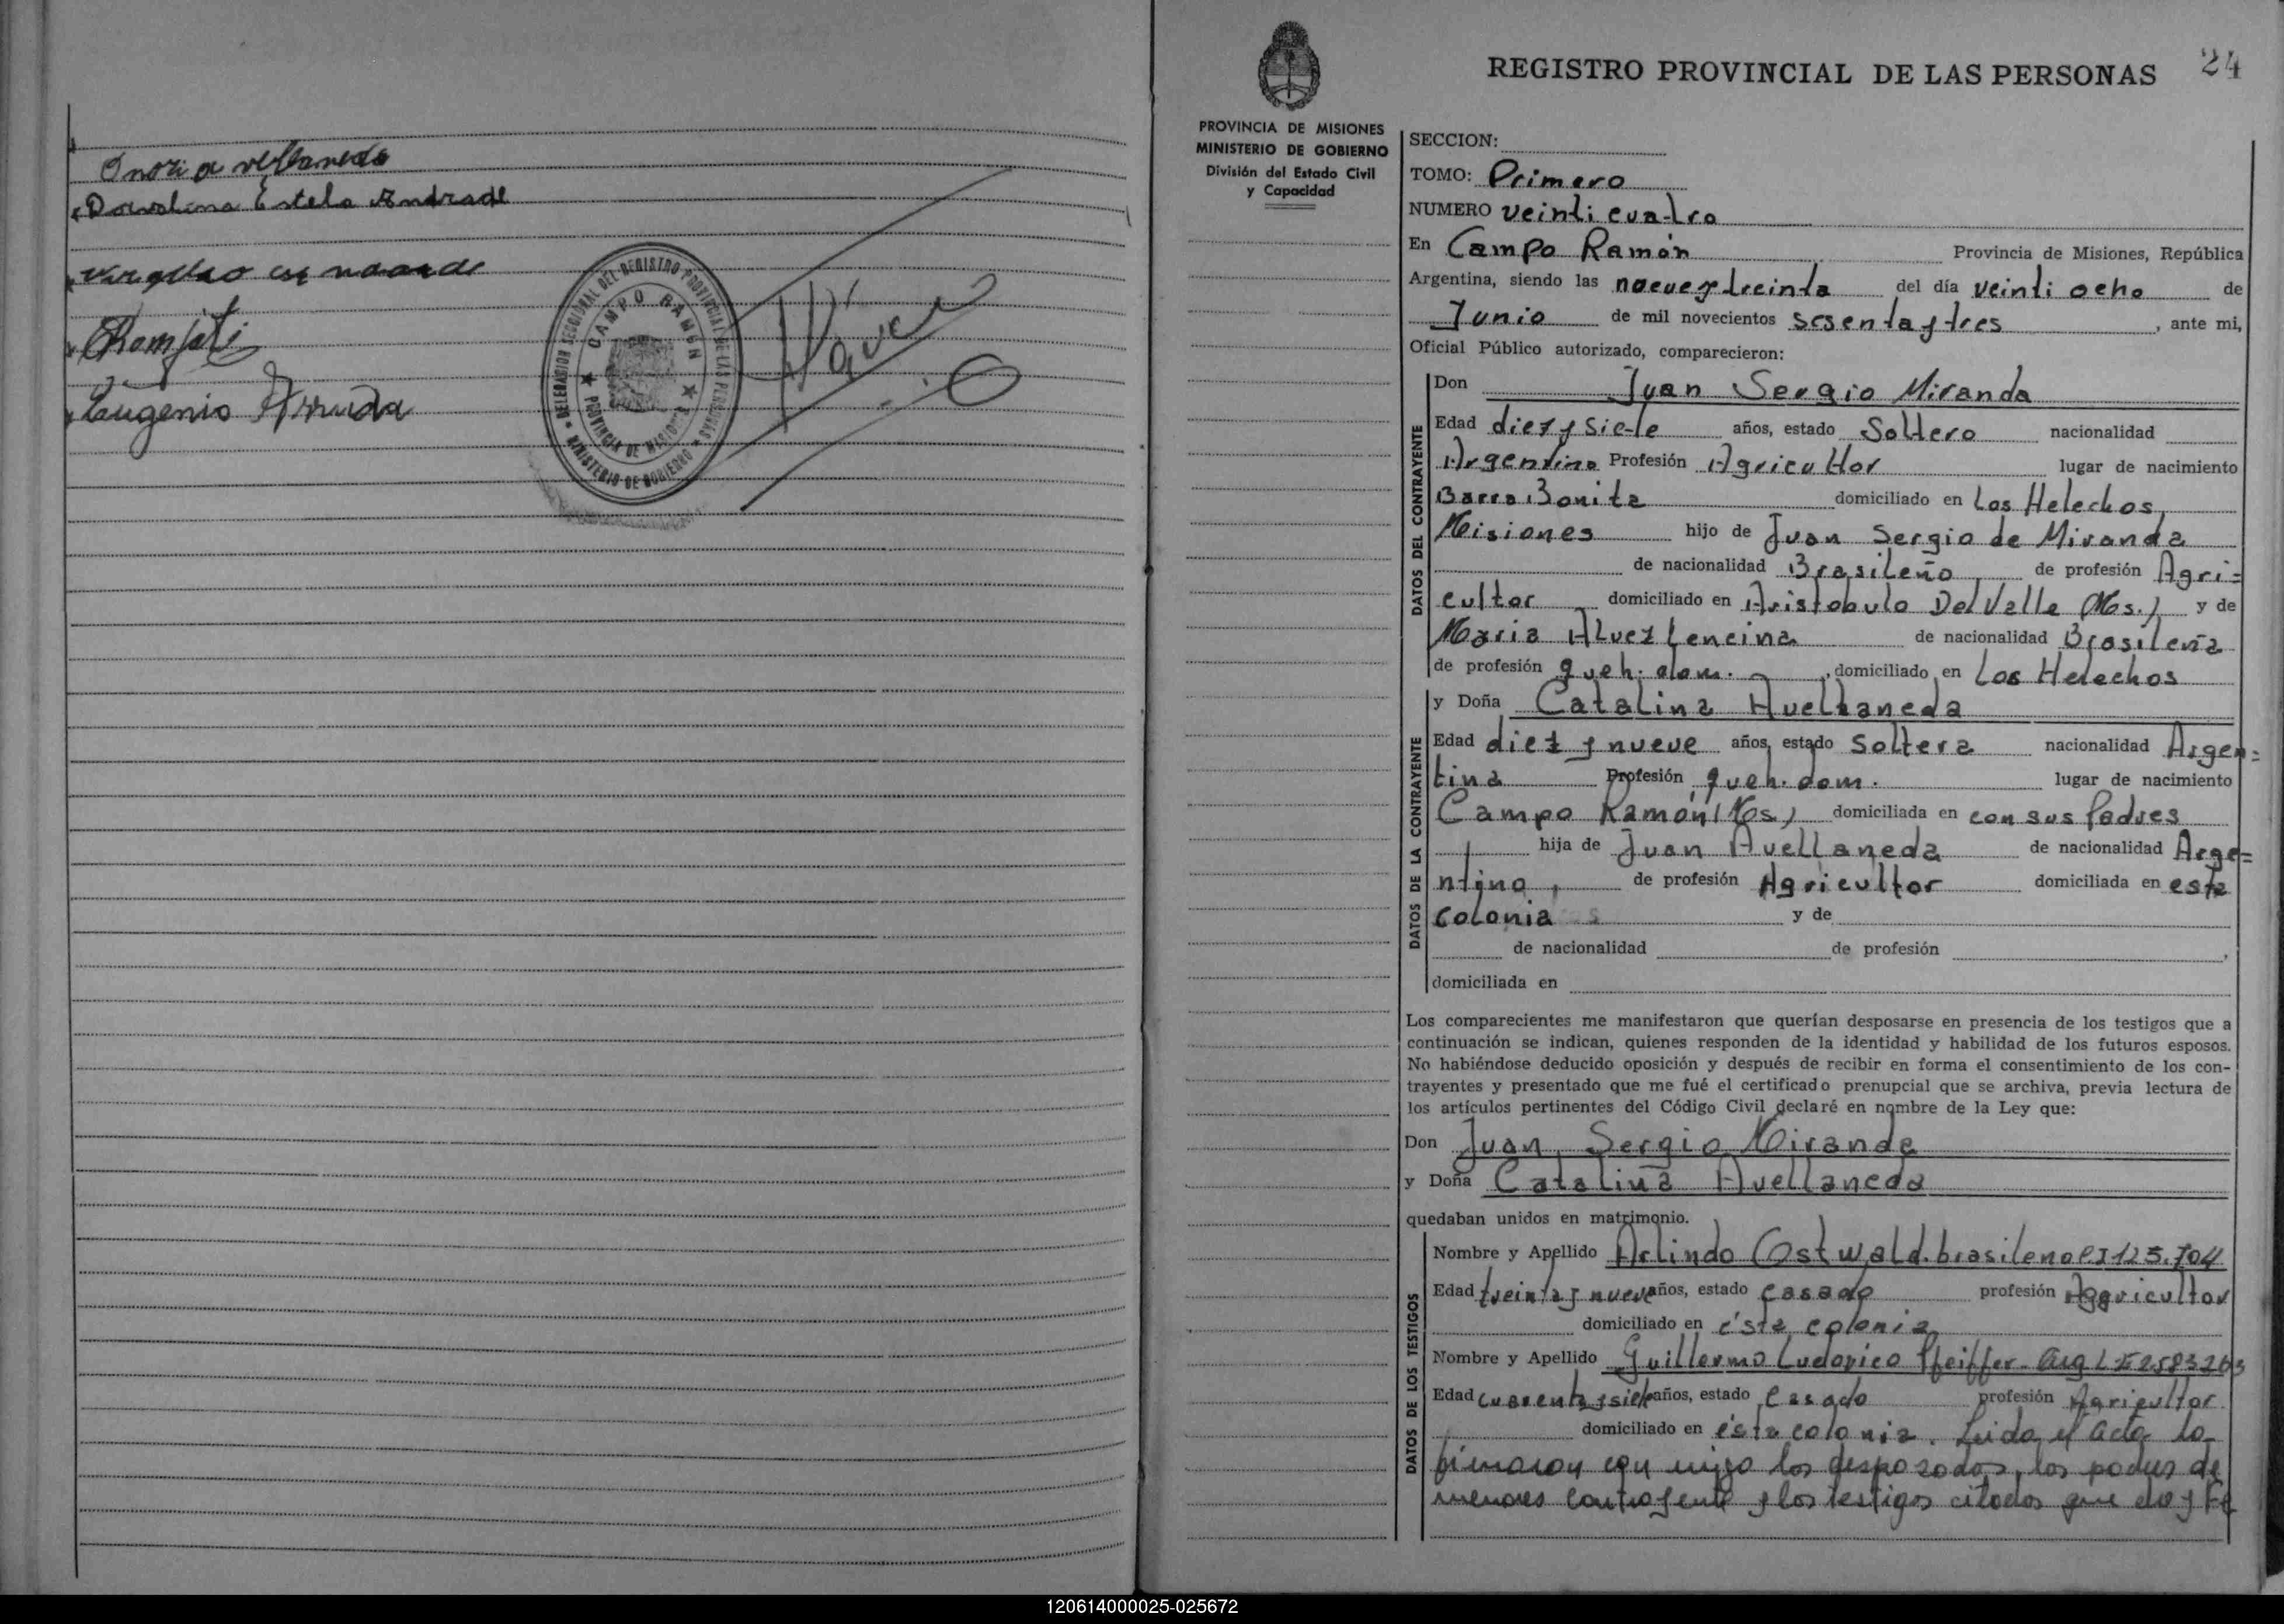 Doralina Estela Andrade
Eugenio Arruda
DELEGACION SECCIONAL DEL REGISTRO PROVINCIAL DE LAS PERSONAS
MINISTERIO DE GOBIERNO
CAMPO RAMON
PROVINCIA DE MISIONES
24
REGISTRO PROVINCIAL DE LAS PERSONAS
PROVINCIA DE MISIONES
MINISTERIO DE GOBIERNO
División del Estado Civil
y Capacidad
SECCION:
TOMO: Primero
NUMERO veinti cuatro
En Campo Ramón Provincia de Misiones, República
Argentina, siendo las nueve y treinta del día veinti ocho de
Junio de mil novecientos sesenta y tres, ante mi,
Oficial Público autorizado, comparecieron:
DATOS DEL CONTRAYENTE
Don Juan Sergio Miranda
Edad diez y siete años, estado Soltero nacionalidad
Argentino Profesión Agricultor lugar de nacimiento
Barra Bonita domiciliado en Los Helechos,
Misiones hijo de Juan Sergio de Miranda
de nacionalidad Brasileño de profesión Agri=
cultor domiciliado en Aristobulo Del Valle (Ms.) y de
Maria Alvez Lencina de nacionalidad Brasileña
de profesión queh. dom. , domiciliado en Los Helechos
DATOS DE LA CONTRAYENTE
y Doña Catalina Avellaneda
Edad diez y nueve años, estado Soltera nacionalidad Argen=
tina Profesión queh. dom. lugar de nacimiento
Campo Ramón (Ms.) domiciliada en con sus Padres
hija de Juan Avellaneda de nacionalidad Arge=
ntino, de profesión Agricultor domiciliada en esta
colonia y de
de nacionalidad de profesión ,
domiciliada en
Los comparecientes me manifestaron que querían desposarse en presencia de los testigos que a
continuación se indican, quienes responden de la identidad y habilidad de los futuros esposos.
No habiéndose deducido oposición y después de recibir en forma el consentimiento de los con-
trayentes y presentado que me fué el certificado prenupcial que se archiva, previa lectura de
los artículos pertinentes del Código Civil declaré en nombre de la Ley que:
Don Juan Sergio Miranda
y Doña Catalina Avellaneda
quedaban unidos en matrimonio.
DATOS DE LOS TESTIGOS
Nombre y Apellido Arlindo Ostwald. brasileno 123.704
Edad treinta y nueve años, estado casado profesión Agricultor
domiciliado en ésta colonia
Nombre y Apellido Guillermo Ludovico Pfeiffer- Arg
Edad cuarenta y siete años, estado casado profesión Agricultor
domiciliado en ésta colonia. Leida el acta la
firmaron con migo los desposados, los padres de
menores contrayente y los testigos citados que doy Fe
120614000025-025672